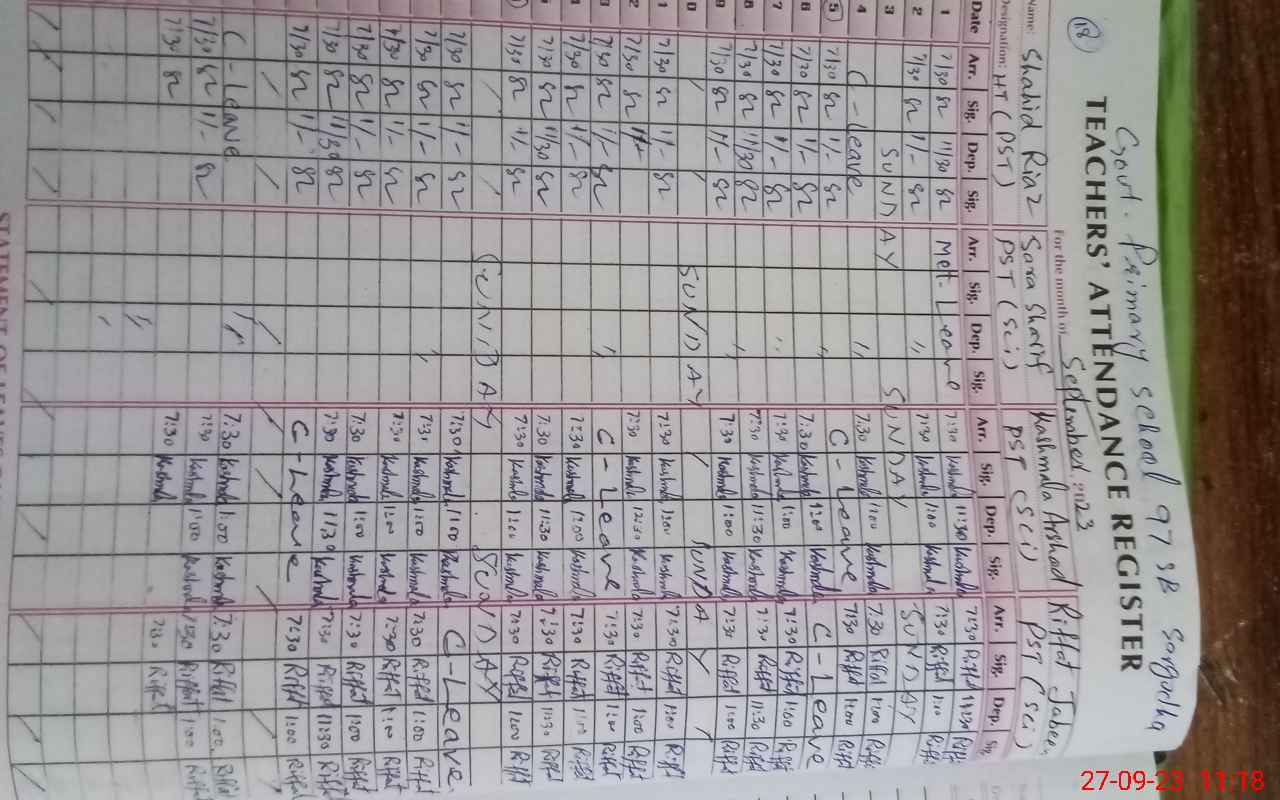 18
Govt. Primary School 97 SB Sargodha
TEACHERS' ATTENDANCE REGISTER
For the month of September, 2023
Name: Shahid Riaz Sara Sharif Kashmala Arshad Riffat Jabeen
Designation: HT (PST) PST (Sci) PST (Sci) PST (Sci)
Date Arr. Sig. Dep. Sig. Arr. Sig. Dep. Sig. Arr. Sig. Dep. Sig. Arr. Sig. Dep. Sig.
1 7/30 11/30 Mett-Leave 7:30 Kashmala 11:30 Kashmala 7:30 Riffat 11:30 Riffat
2 7/30 1/- 7:30 Kashmala 1:00 Kashmala 7:30 Riffat 1:00 Riffat
3 SUNDAY SUNDAY SUNDAY
4 C-Leave 7:30 Kashmala 1:00 Kashmala 7:30 Riffat 1:00 Riffat
5 7/30 1/- C-Leave 7:30 Riffat 1:00 Riffat
6 7/30 1/- 7:30 Kashmala 1:00 Kashmala C-Leave
7 7/30 1/- 7:30 Kashmala 1:00 Kashmala 7:30 Riffat 1:00 Riffat
8 7/30 11/30 7:30 Kashmala 11:30 Kashmala 7:30 Riffat 11:30 Riffat
9 7/30 1/- 7:30 Kashmala 1:00 Kashmala 7:30 Riffat 1:00 Riffat
0 SUNDAY SUNDAY
1 7/30 1/- 7:30 Kashmala 1:00 Kashmala 7:30 Riffat 1:00 Riffat
2 7/30 7:30 Kashmala Kashmala 7:30 Riffat 1:00 Riffat
3 7/30 1/- C-Leave 7:30 Riffat 1:00 Riffat
7/30 1/- 7:30 Kashmala 1:00 Kashmala 7:30 Riffat 1:00 Riffat
7/30 11/30 7:30 Kashmala 11:30 Kashmala 7:30 Riffat 11:30 Riffat
7/30 1/- 7:30 Kashmala 1:00 Kashmala 7:30 Riffat 1:00 Riffat
SUNDAY SUNDAY
7/30 1/- 7:30 Kashmala 1:00 Kashmala C-Leave
7/30 1/- 7:30 Kashmala 1:00 Kashmala 7:30 Riffat 1:00 Riffat
7/30 1/- 7:30 Kashmala 1:00 Kashmala 7:30 Riffat 1:00 Riffat
7/30 1/- 7:30 Kashmala 1:00 Kashmala 7:30 Riffat 1:00 Riffat
7/30 11/30 7:30 Kashmala 11:30 Kashmala 7:30 Riffat 11:30 Riffat
7/30 1/- C-Leave 7:30 Riffat 1:00 Riffat
C-Leave 7:30 Kashmala 1:00 Kashmala 7:30 Riffat 1:00 Riffat
7/30 1/- 7:30 Kashmala 1:00 Kashmala 7:30 Riffat 1:00 Riffat
7/30 7:30 Kashmala 7:30 Riffat
27-09-23 11:18